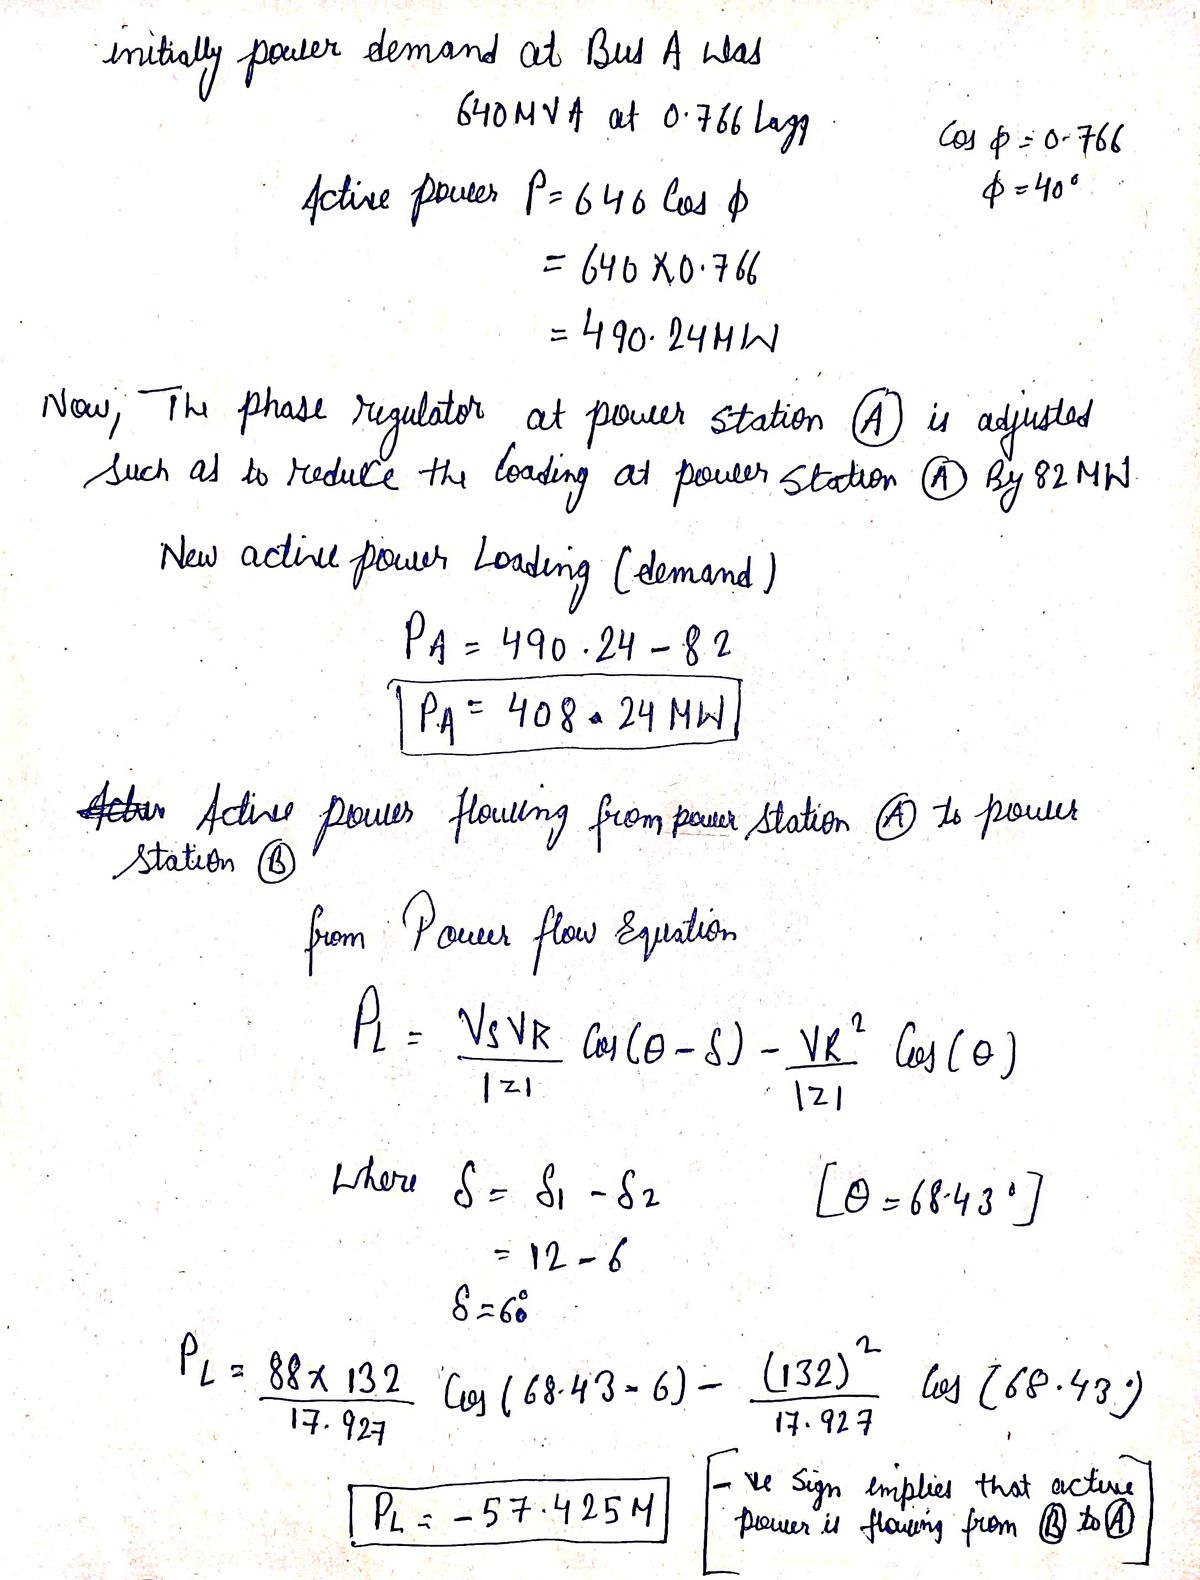 initially power demand at Bus A was
640 MVA at 0.766 Lagg
Cos φ = 0.766
φ = 40°
Active power P = 640 Cos φ
= 640 X 0.766
= 490.24 MW
Now, The phase regulator at power station Ⓐ is adjusted
such as to reduce the loading at power station Ⓐ By 82 MW
New active power Loading (demand)
PA = 490.24 - 82
PA = 408.24 MW
Active power flowing from power station Ⓐ to power
station Ⓑ
from Power flow Equation
PL = VSVR/|z| Cos(θ-δ) - VR²/|z| Cos(θ)
where δ = δ1 - δ2 [θ = 68.43°]
= 12 - 6
δ = 6°
PL = 88 x 132/17.927 Cos(68.43 - 6) - (132)²/17.927 Cos(68.43°)
PL = -57.425M
[-ve sign implies that active
power is flowing from Ⓑ to Ⓐ]